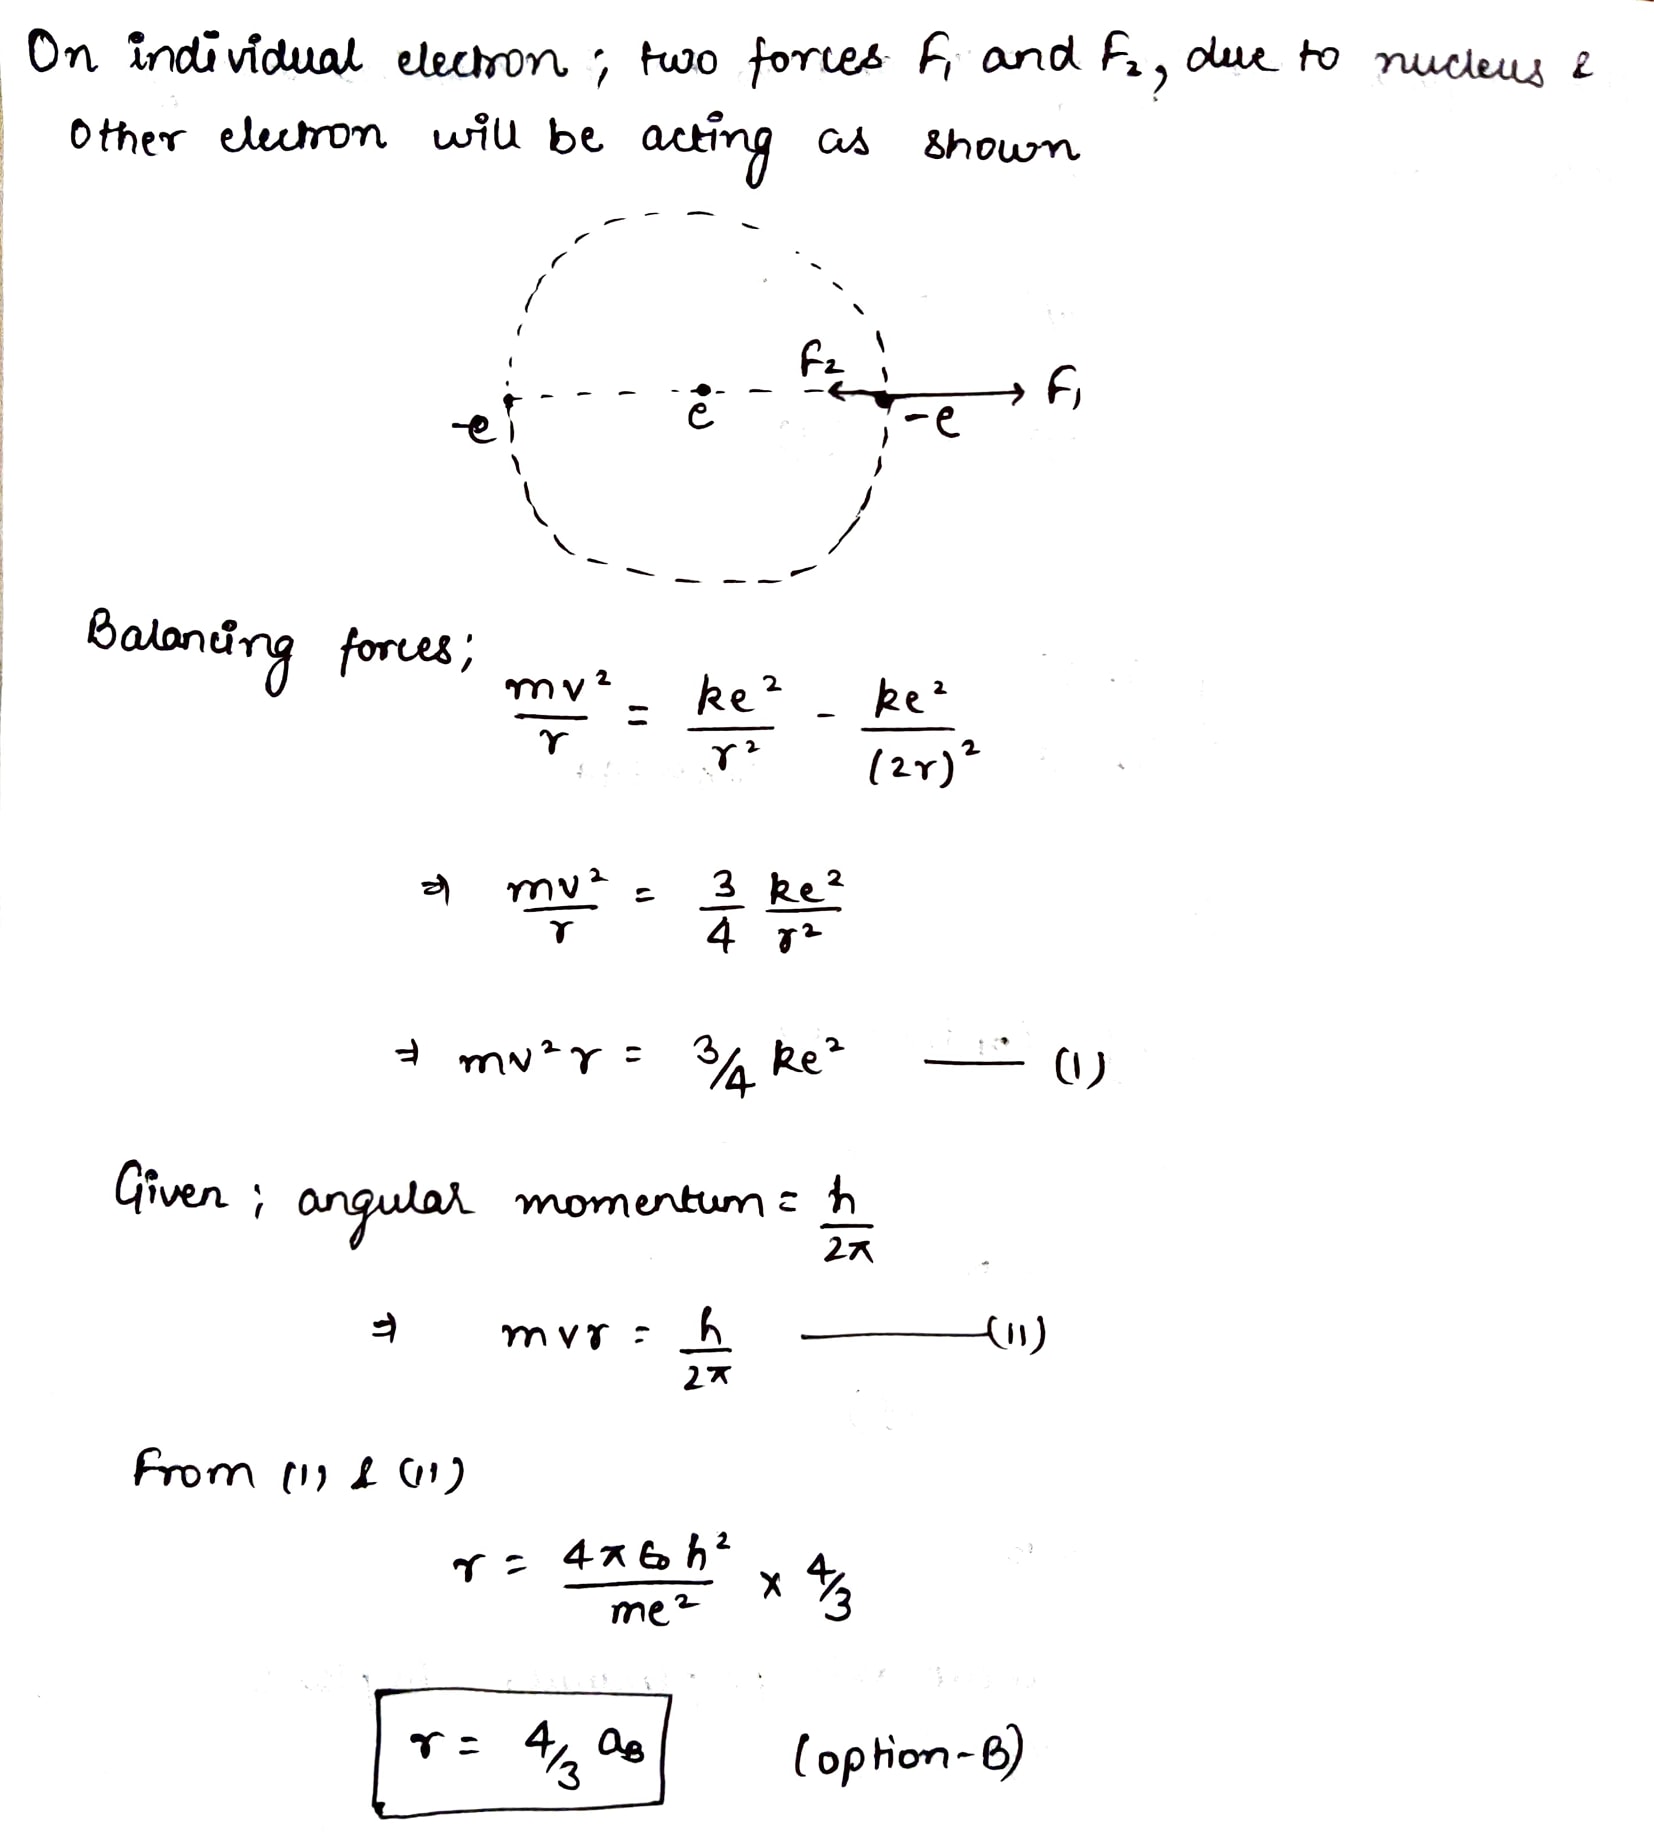 On individual electron ; two forces F₁ and F₂, due to nucleus &
other electron will be acting as shown
F₂
F₁
-e
e
-e
Balancing forces;
mv²/r = ke²/r² - ke²/(2r)²
⇒ mv²/r = 3/4 ke²/r²
⇒ mv²r = 3/4 ke² —— (I)
Given ; angular momentum = h/2π
⇒ mvr = h/2π —— (II)
From (I) & (II)
r = 4πε₀ħ²/me² × 4/3
r = 4/3 aB
(option-B)